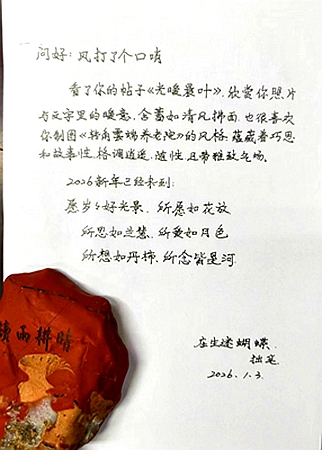 问好:风打了个口哨
看了你的帖子《光暖蓑叶》,欣赏你照片
与文字里的暖意,含蓄如清风拂面,也很喜欢
你制图《转角云端养老院》的风格,蕴藏着巧思
和故事性,格调逍遥、随性,且带雅致气场。
2026新年已经来到:
愿岁岁好光景,所愿如花放
所思如兰慧,所爱如月色
所想如丹柿,所念皆星河
庄生迷蝴蝶
拙笔
2026.1.3.
晴耕雨读